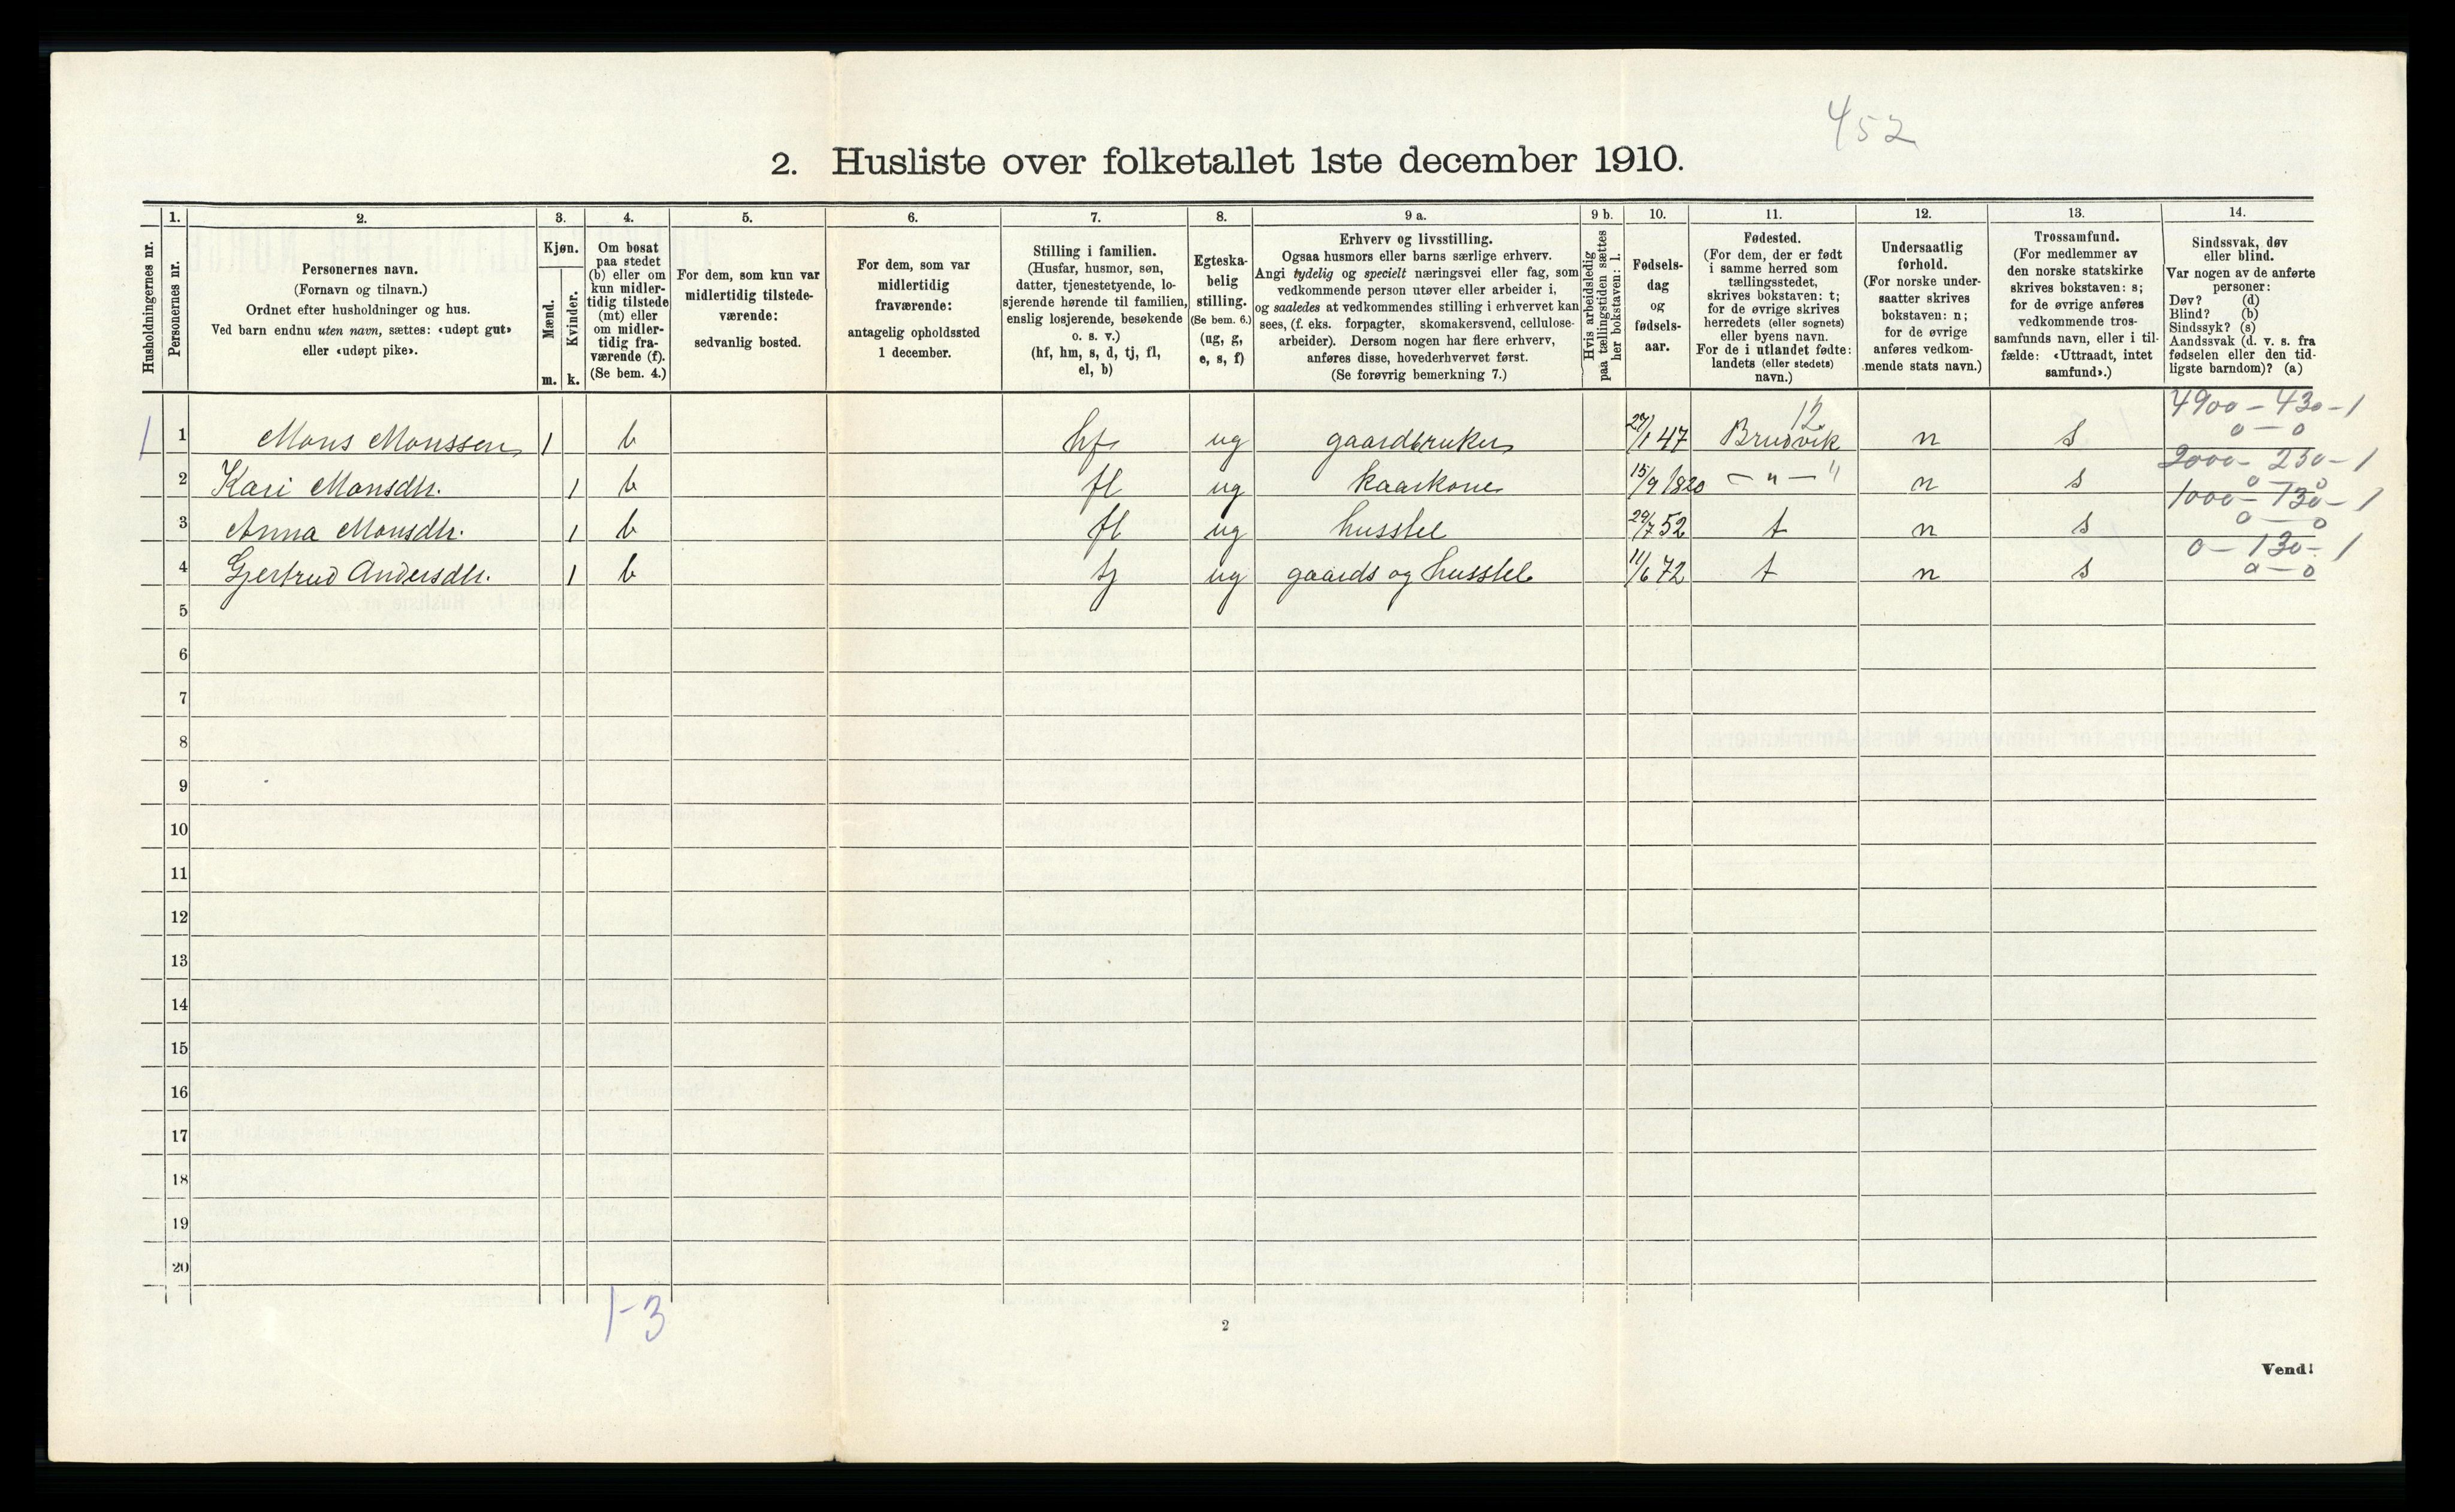 452
2. Husliste over folketallet 1ste december 1910.
Husholdningernes nr.
1. Personernes nr.
2. Personernes navn.
(Fornavn og tilnavn.)
Ordnet efter husholdninger og hus.
Ved barn endnu uten navn, sættes: «udøpt gut»
eller «udøpt pike».
3. Kjøn.
Mænd. m.
Kvinder. k.
4. Om bosat
paa stedet
(b) eller om
kun midler-
tidig tilstede
(mt) eller
om midler-
tidig fra-
værende (f).
(Se bem. 4.)
5. For dem, som kun var
midlertidig tilstede-
værende:
sedvanlig bosted.
6. For dem, som var
midlertidig
fraværende:
antagelig opholdssted
1 december.
7. Stilling i familien.
(Husfar, husmor, søn,
datter, tjenestetyende, lo-
sjerende hørende til familien,
enslig losjerende, besøkende
o. s. v.)
(hf, hm, s, d, tj, fl,
el, b)
8. Egteska-
belig
stilling.
(Se bem. 6.)
(ug, g,
e, s, f)
9 a. Erhverv og livsstilling.
Ogsaa husmors eller barns særlige erhverv.
Angi tydelig og specielt næringsvei eller fag, som
vedkommende person utøver eller arbeider i,
og saaledes at vedkommendes stilling i erhvervet kan
sees, (f. eks. forpagter, skomakersvend, cellulose-
arbeider). Dersom nogen har flere erhverv,
anføres disse, hovederhvervet først.
(Se forøvrig bemerkning 7.)
9 b. Hvis arbeidsledig
paa tællingstiden sættes
her bokstaven: l.
10. Fødsels-
dag
og
fødsels-
aar.
11. Fødested.
(For dem, der er født
i samme herred som
tællingsstedet,
skrives bokstaven: t;
for de øvrige skrives
herredets (eller sognets)
eller byens navn.
For de i utlandet fødte:
landets (eller stedets)
navn.)
12. Undersaatlig
forhold.
(For norske under-
saatter skrives
bokstaven: n;
for de øvrige
anføres vedkom-
mende stats navn.)
13. Trossamfund.
(For medlemmer av
den norske statskirke
skrives bokstaven: s;
for de øvrige anføres
vedkommende tros-
samfunds navn, eller i til-
fælde: «Uttraadt, intet
samfund».)
14. Sindssvak, døv
eller blind.
Var nogen av de anførte
personer:
Døv? (d)
Blind? (b)
Sindssyk? (s)
Aandssvak (d. v. s. fra
fødselen eller den tid-
ligste barndom)? (a)
12 4900 - 430 - 1
1 1 Mons Monssen 1 b hf ug gaardbruker 27/1 47 Bruvik n s 0 - 0
2000 - 230 - 1
2 Kari Monsdtr. 1 b fl ug kaarkone 15/9 1820 - " - " n s 0 - 0
1000 - 130 - 1
3 Anna Monsdtr. 1 b fl ug husstel 29/7 52 t n s 0 - 0
0 - 130 - 1
4 Gjertrud Andersdtr. 1 b tj ug gaards og husstel 11/6 72 t n s 0 - 0
5
6
7
8
9
10
11
12
13
14
15
16
17
18
19
20
1-3
2
Vend!